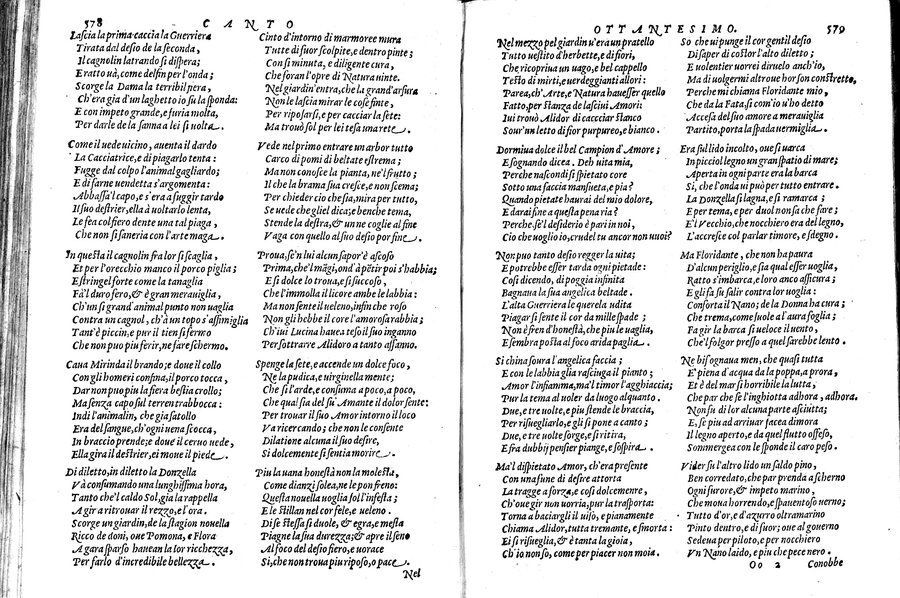 578 CANTO
Lascia la prima caccia la Guerriera
Tirata dal desio de la seconda,
Il cagnolin latrando si dispera;
Et ratto uà, come delfin per l'onda;
Scorge la Dama la terribil pera,
Ch'era gia d'un laghetto iu su la sponda:
E con impeto grande, e furia molta,
Per darle de la sanna a lei si uolta.
Come il uede uicino, auenta il dardo
La Cacciatrice, e di piagarlo tenta:
Fugge dal colpo l'animal gagliardo;
E di farne uendetta s'argomenta:
Abbassa'l capo, e s'era a fuggir tardo
Il suo destrier, ella à uoltarlo lenta,
Le fea col fiero dente una tal piaga,
Che non si saneria con l'arte maga.
In questa il cagnolin fra lor si scaglia,
Et per l'orecchio manco il porco piglia;
E stringel forte come la tanaglia
Fà'l duro fero, & è gran merauiglia,
Ch'un si grand'animal punto non uaglia
Contra un cagnol, ch'à un topo s'assimiglia
Tant'è piccin; e pur il tien si fermo
Che non puo piu ferir, ne far e schermo.
Caua Mirinda il brando; e doue il collo
Con gli homeri confina, il porco tocca,
Dar non puo piu la fiera bestia crollo;
Ma senza capo sul terren trabbocca:
Indi l'animalin, che gia satollo
Era del sangue, ch'ogni uena scocca,
In braccio prende; e doue il ceruo uede,
Ella gira il destrier, ei moue il piede.
Di diletto, in diletto la Donzella
Và consumando una lunghissima hora,
Tanto che'l caldo Sol, gia la rappella
A gir a ritrouar il rezzo, e l'ora.
Scorge un giardin, de la stagion nouella
Ricco de doni, oue Pomona, e Flora
A gara sparso haueau la lor ricchezza,
Per farlo d'incredibile bellezza.
Cinto d'intorno di marmoree mura
Tutte di fuor scolpite, e dentro pinte;
Con si minuta, e diligente cura,
Che foran l'opre di Natura uinte.
Nel giardin entra, che la grand'arsura
Non le lascia mirar le cose finte,
Per riposarsi, e per cacciar la sete:
Ma trouò sol per lei tesa una rete.
Vede nel primo entrare un arbor tutto
Carco di pomi di beltate estrema;
Ma non conosce la pianta, ne'l frutto;
Il che la brama sua cresce, e non scema;
Per chieder cio che sia, mira per tutto,
Se uede chegliel dica; e ben che tema,
Stende la destra, & un ne coglie al fine
Vaga con quello al suo desio por fine.
Proua, s'en lui alcun sapor'è ascoso
Prima, che'l mãgi, ond'à pẽtir poi s'habbia;
E si dolce lo troua, e si succoso,
Che l'immolla il licore ambe le labbia:
Ma non sente il ueleno, insin che roso
Non gli hebbe il core l'amorosa rabbia;
Ch'iui Lucina hauea teso il suo inganno
Per sottrarre Alidoro a tanto affanno.
Spenge la sete, e accende un dolce foco,
Ne la pudica, e uirginella mente;
Che si l'arde, e consuma a poco, a poco,
Che qual sia del su' Amante il dolor sente:
Per trouar il suo Amor intorno il loco
Va ricercando; che non le consente
Dilatione alcuna il suo desire,
Si dolcemente si sentia morire.
Piu la uana honestà non la molesta,
Come dianzi solea, ne le pon freno:
Questa nouella uoglia sol l'infesta;
E le stillan nel cor foco, e ueleno.
Di se stessa si duole, & egra, e mesta
Piagne la sua durezza; & apre il seno
Al foco del desio fiero, e uorace
Si, che non troua piu riposo, o pace.
Nel
OTTANTESIMO. 579
Nel mezzo pel giardin u'era un pratello
Tutto uestito d'herbette, e di fiori,
Che ricopriua un uago, e bel cappello
Testo di mirti, e uerdeggianti allori:
Parea, ch'Arte, e Natura hauesser quello
Fatto, per stanza de lasciui Amori:
Iui trouò Alidor di cacciar stanco
Sour'un letto di fior purpureo, e bianco.
Dormiua dolce il bel Campion d'Amore;
E sognando dicea. Deh uita mia,
Perche nascondi si spietato core
Sotto una faccia mansueta, e pia?
Quando pietate haurai del mio dolore,
E darai fine a questa pena ria?
Perche, se'l desiderio è pari in noi,
Cio che uoglio io, crudel tu ancor non uuoi?
Non puo tanto desio regger la uita;
E potrebbe esser tarda ogni pietade:
Cosi dicendo, di pioggia infinita
Bagnaua la sua angelica beltade.
L'alta Guerriera le querela udita
Piagar si sente il cor da mille spade;
Non è fren d'honestà, che piu le uaglia,
E sembra posta al foco arida paglia.
Si china soura l'angelica faccia;
E con le labbia gli rasciuga il pianto;
Amor l'infiamma, ma'l timor l'agghiaccia;
Pur la tema al uoler da luogo alquanto.
Due, e tre uolte, e piu stende le braccia,
Per risuegliarlo, e gli si pone a canto;
Due, e tre uolte sorge, e si ritira,
E fra dubbij pensier piange, e sospira.
Ma'l dispietato Amor, ch'era presente
Con una fune di desire attorta
La tragge a forza, e cosi dolcemente,
Ch'oue gir non uorria, pur la trasporta:
Torna a baciargli il uiso, e pianamente
Chiama Alidor, tutta tremante, e smorta:
Ei si risueglia, & è tanta la gioia,
Ch'io non so, come per piacer non moia.
So che ui punge il cor gentil desio
Di saper di costor l'alto diletto;
E uolentier uorrei diruelo anch'io,
Ma di uolgermi altroue hor son constretto,
Perche mi chiama Floridante mio,
Che da la Fata si com'io u'ho detto
Accesa del suo amore a merauiglia
Partito, porta la spada uermiglia.
Era sul lido incolto, oue si uarca
In picciol legno un gran spatio di mare;
Aperta in ogni parte era la barca
Si, che l'onda ui può per tutto entrare.
La Donzella si lagna, e si ramarca;
E per tema, e per duol non sa che fare;
E'l Vecchio, che nocchiero era del legno,
L'accresce col parlar timore, e sdegno.
Ma Floridante, che non ha paura
D'alcun periglio, e sia qual esser uoglia,
Ratto s'imbarca, e loro anco assicura;
E gli fa su salir contra lor uoglia:
Conforta il Nano; de la Donna ha cura;
Che trema, come suole al'aura foglia;
Fa gir la barca si ueloce il uento,
Che'l folgor presso a quel sarebbe lento.
Ne bisognaua men, che quasi tutta
E' piena d'acqua da la poppa, a prora,
Et è del mar si horribile la lutta,
Che par che se l'inghiotta adhora, adhora.
Non su di lor alcuna parte asciutta;
E, se piu ad arriuar facea dimora
Il legno aperto, e da quel flutto offeso,
Sommergea con le sponde il caro peso.
Vider su l'altro lido un saldo pino,
Ben corredato, che par prenda a scherno
Ogni furore, & impeto marino,
Che moua horrendo, e spauentoso uerno;
Tutto d'or, e d'azurro oltramarino
Pinto dentro, e di fuor; oue al gouerno
Sedeua per piloto, e per nocchiero
Vn Nano laido, e piu che pece nero.
Oo 2 Conobbe